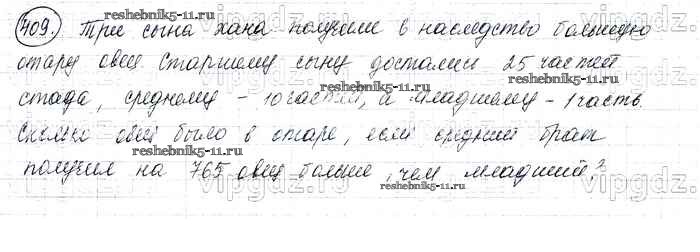 reshebnik5-11.ru
409. Три сына хана получили в наследство большую
отару овец. Старшему сыну достались 25 частей
reshebnik5-11.ru
стада, среднему - 10 частей, а младшему - 1 часть.
Сколько овец было в отаре, если средний брат
reshebnik5-11.ru
получил на 765 овец больше, чем младший?
reshebnik5-11.ru
vipgdz.ru